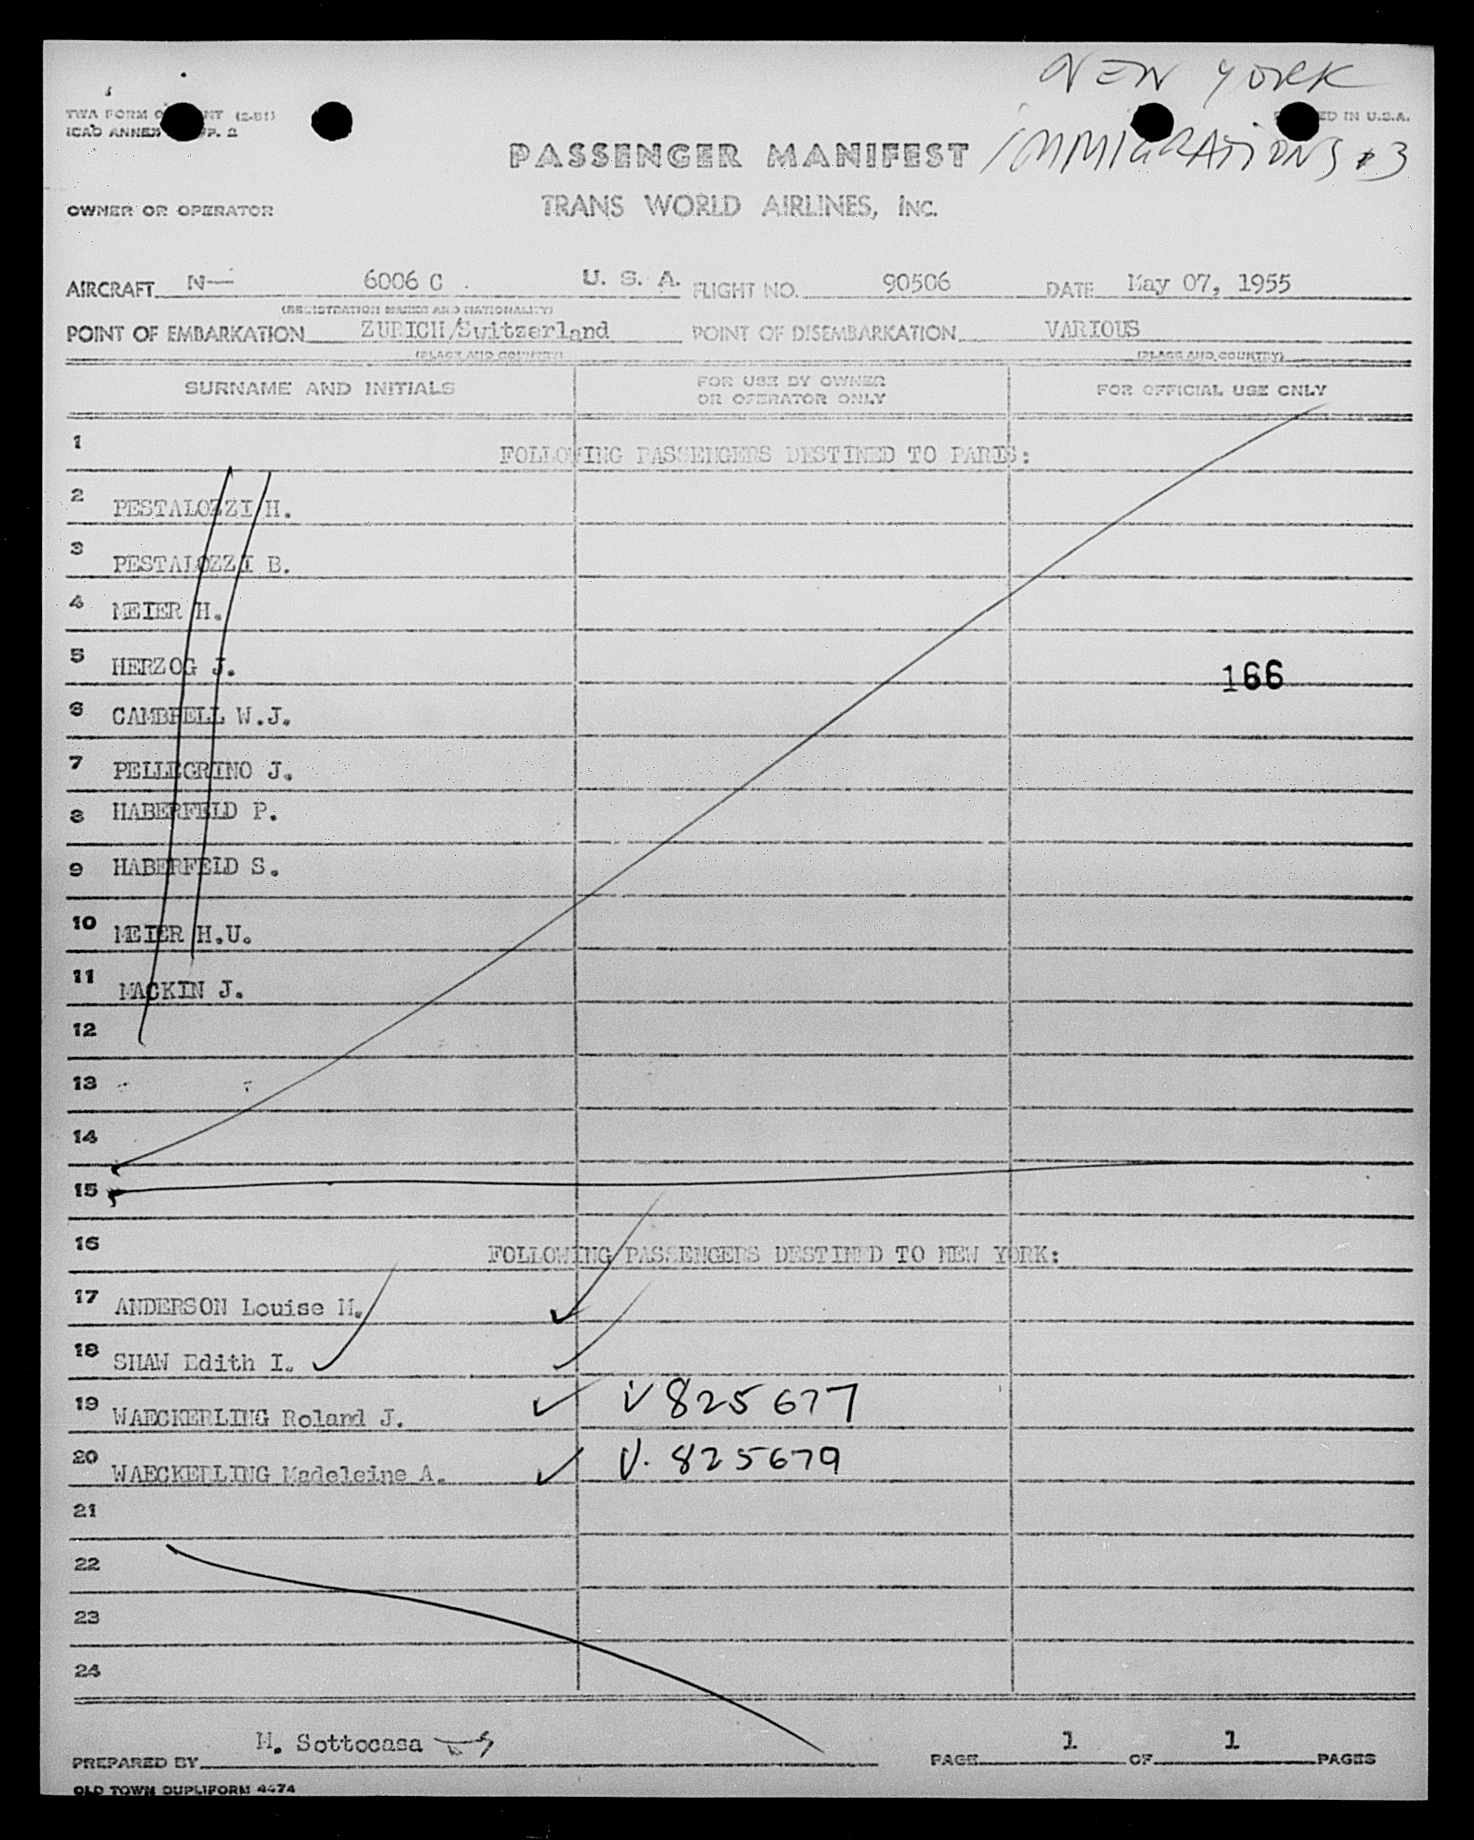 NEW YORK
TWA FORM (2-51)
PRINTED IN U.S.A.
ICAO ANNEX APP. 2
PASSENGER MANIFEST
IMMIGRATIONS 3
OWNER OR OPERATOR
TRANS WORLD AIRLINES, INC.
AIRCRAFT N— 6006 C U. S. A. FLIGHT NO. 90506 DATE May 07, 1955
(REGISTRATION MARKS AND NATIONALITY)
POINT OF EMBARKATION ZURICH/Switzerland POINT OF DISEMBARKATION VARIOUS
(PLACE AND COUNTRY) (PLACE AND COUNTRY)
SURNAME AND INITIALS FOR USE BY OWNER OR OPERATOR ONLY FOR OFFICIAL USE ONLY
1 FOLLOWING PASSENGERS DESTINED TO PARIS:
2 PESTALOZZI H.
3 PESTALOZZI B.
4 MEIER H.
5 HERZOG J. 166
6 CAMBPELL W.J.
7 PELLEGRINO J.
8 HABERFELD P.
9 HABERFELD S.
10 MEIER H.U.
11 MACKIN J.
12
13
14
15
16 FOLLOWING PASSENGERS DESTINED TO NEW YORK:
17 ANDERSON Louise M.
18 SHAW Edith I.
19 WAECKERLING Roland J. V 825677
20 WAECKERLING Madeleine A. V. 825679
21
22
23
24
PREPARED BY M. Sottocasa PAGE 1 OF 1 PAGES
OLD TOWN DUPLIFORM 4474